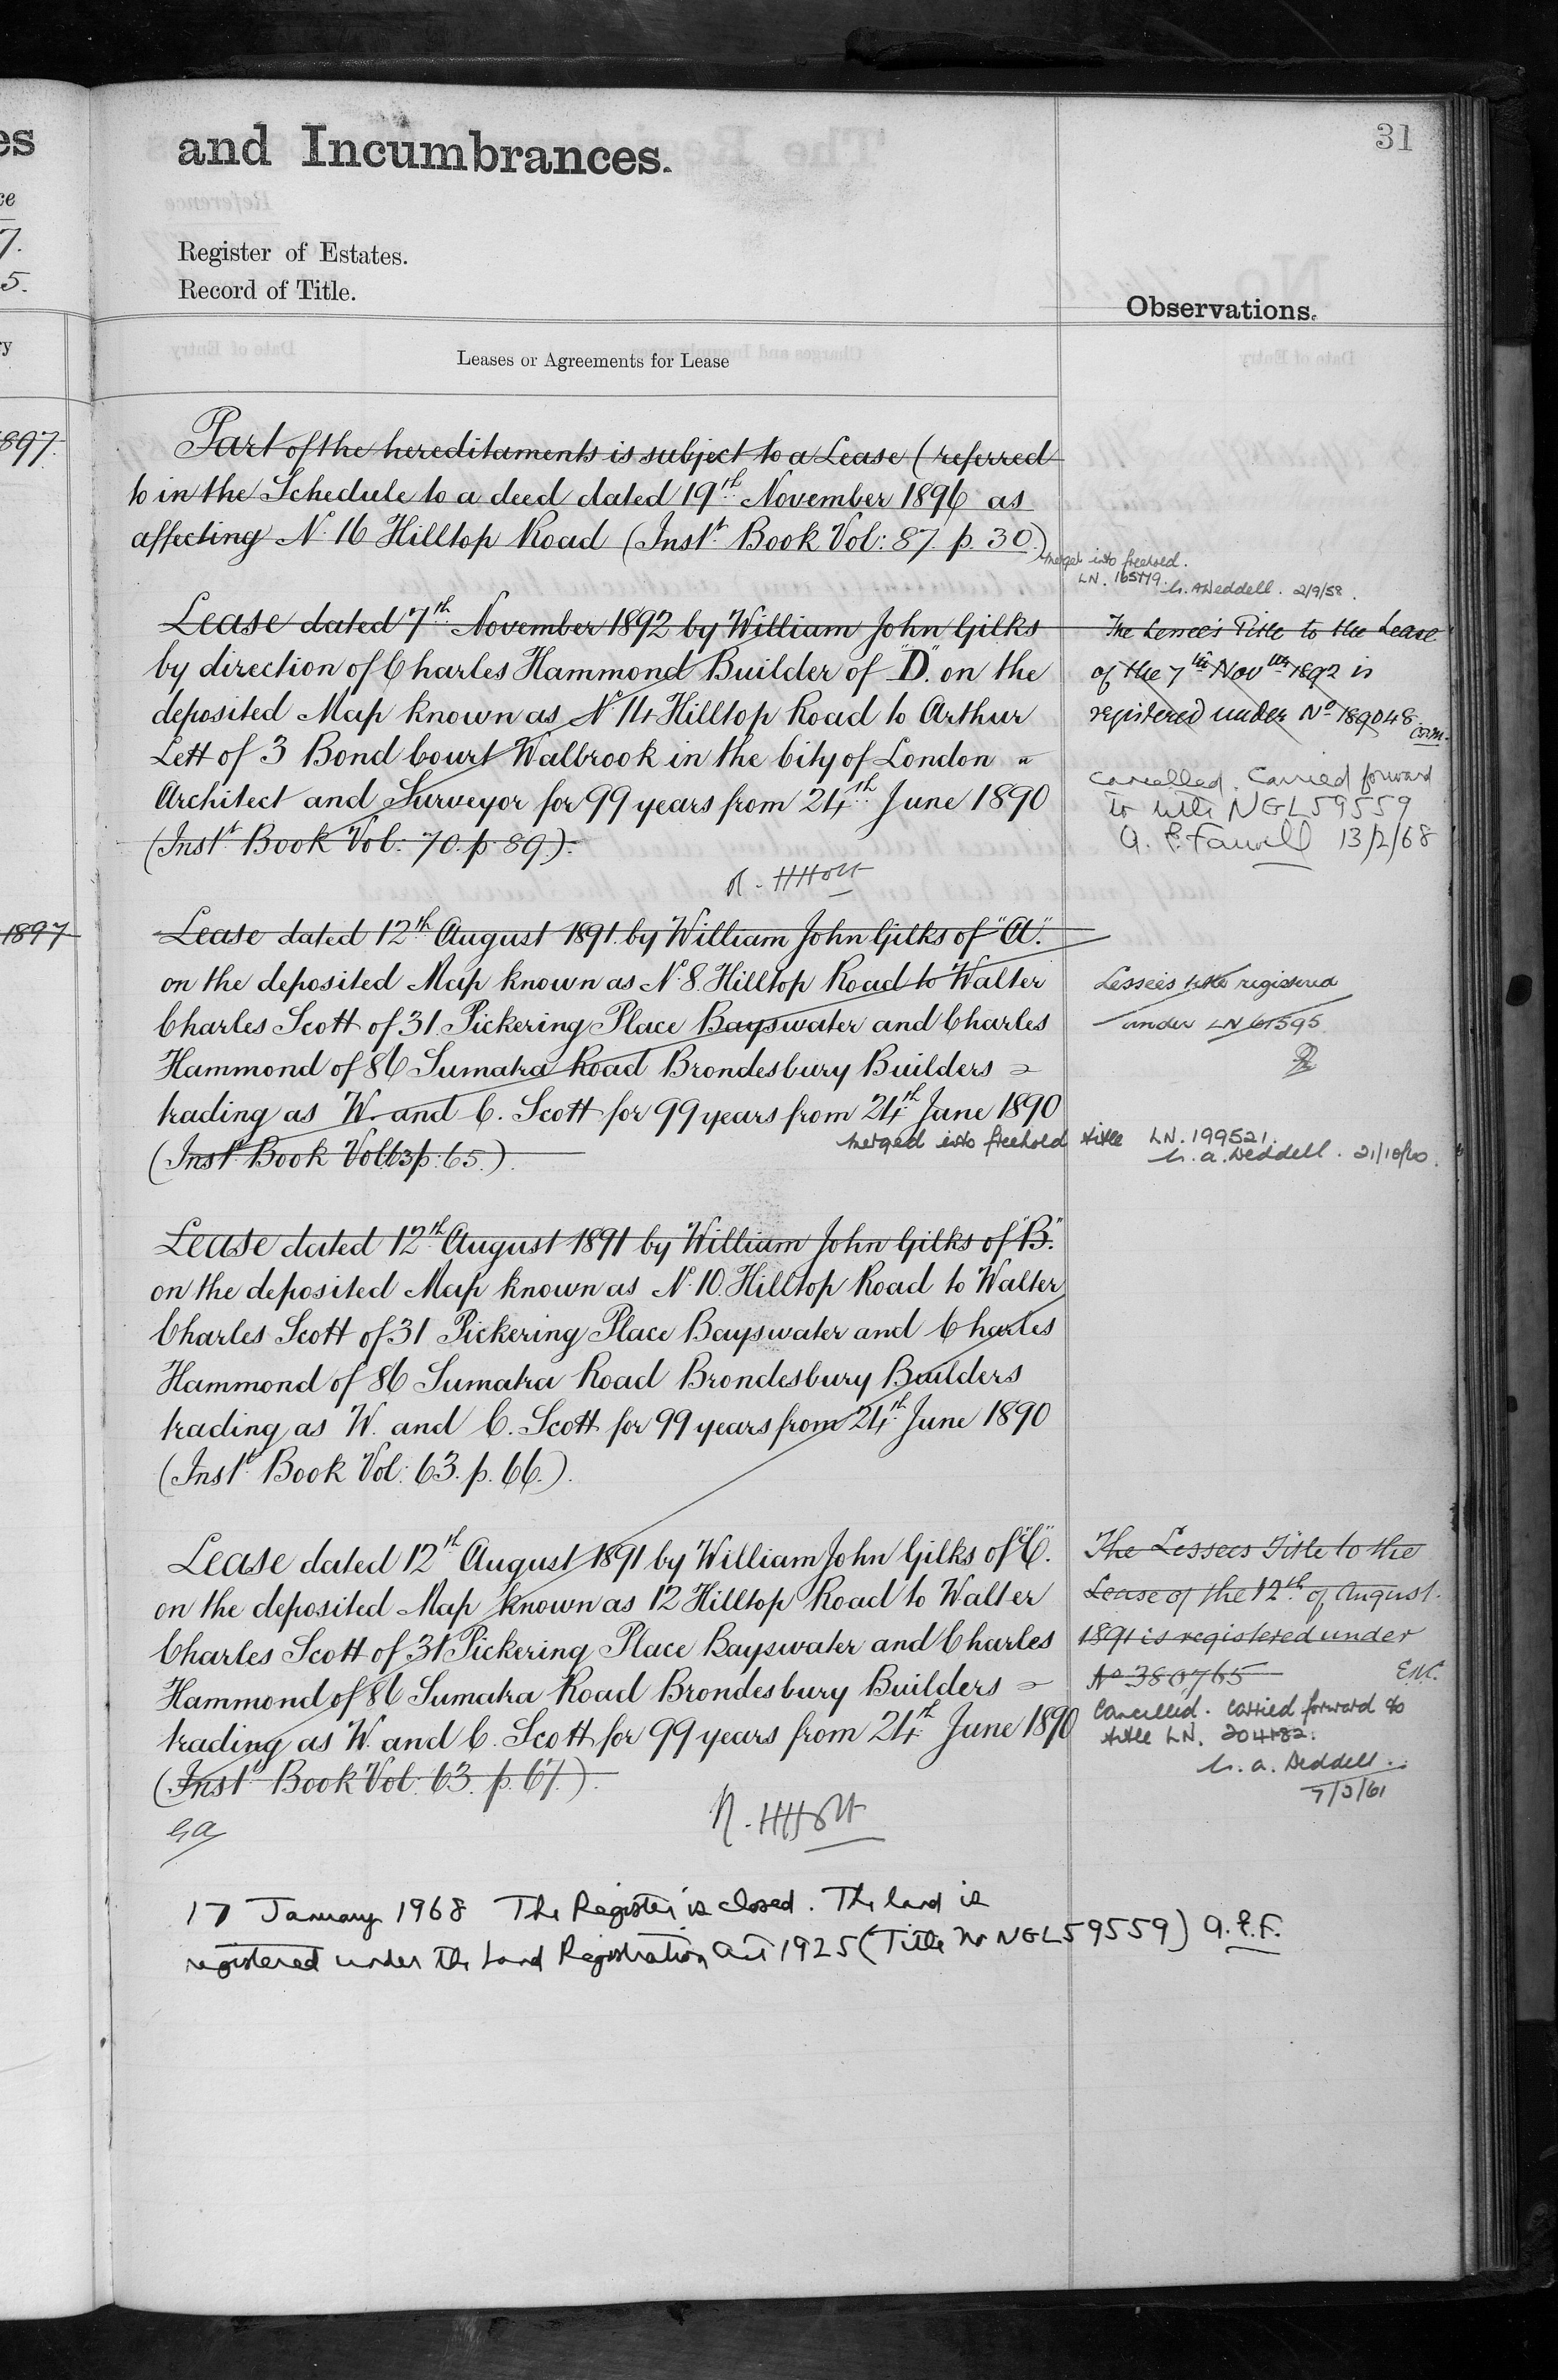 es
and Incumbrances.
31
ce
7.
Register of Estates.
5.
Record of Title.
Observations.
ry
Leases or Agreements for Lease
897.
Part of the hereditaments is subject to a Lease (referred
to in the Schedule to a deed dated 19th November 1896 as
affecting No. 16 Hilltop Road (Instt. Book Vol: 87. p. 30.)
merged into freehold.
LN. 165779. A Deddell. 2/9/58.
Lease dated 7th November 1892 by William John Gilks
by direction of Charles Hammond Builder of "D". on the
deposited Map known as No. 14 Hilltop Road to Arthur
Lett of 3 Bond Court Walbrook in the City of London
Architect and Surveyor for 99 years from 24th June 1890
(Instt. Book Vol: 70. p. 89.).
The Lessee's Title to the Lease
of the 7th Novber 1892 is
registered under No 189048.
Cancelled. Carried forward
to title NGL59559
A. P. Farwell 13/2/68
1897
Lease dated 12th August 1891. by William John Gilks of "A".
on the deposited Map known as No. 8. Hilltop Road to Walter
Charles Scott of 31 Pickering Place Bayswater and Charles
Hammond of 86 Sumatra Road Brondesbury Builders
trading as W. and C. Scott for 99 years from 24th June 1890
(Instt. Book Vol 63 p. 65.).
Lessee's title registered
under LN 61595
merged into freehold title LN. 199521.
A. Deddell. 21/10/60.
Lease dated 12th August 1891 by William John Gilks of "B".
on the deposited Map known as No. 10. Hilltop Road to Walter
Charles Scott of 31 Pickering Place Bayswater and Charles
Hammond of 86 Sumatra Road Brondesbury Builders
trading as W. and C. Scott for 99 years from 24th June 1890
(Instt. Book Vol: 63. p. 66.).
Lease dated 12th August 1891 by William John Gilks of "C".
on the deposited Map known as 12 Hilltop Road to Walter
Charles Scott of 31 Pickering Place Bayswater and Charles
Hammond of 86 Sumatra Road Brondesbury Builders
trading as W. and C. Scott for 99 years from 24th June 1890
(Instt. Book Vol: 63. p. 67.).
The Lessees Title to the
Lease of the 12th of August.
1891 is registered under
No 380765
Cancelled. Carried forward to
title LN. 204182.
A. Deddell.
7/3/61
17 January 1968 The Register is closed. The land is
registered under the Land Registration Act 1925 (Title No NGL59559) A.P.F.